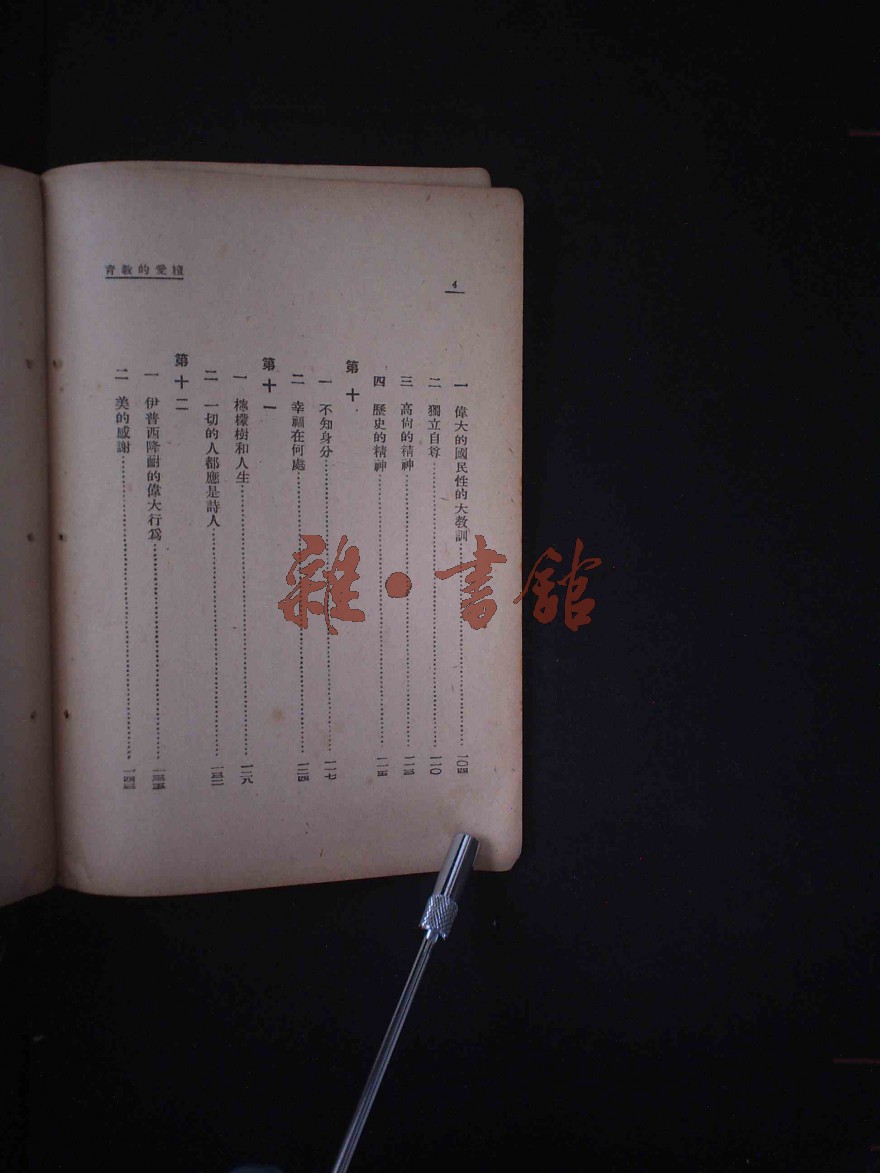 續愛的教育
4
一 偉大的國民性的大教訓……一〇四
二 獨立自尊……一一〇
三 高尙的精神……一一三
四 歷史的精神……一一五
第十
一 不知身分……一一七
二 幸福在何處……一二四
第十一
一 檸檬樹和人生……一二八
二 一切的人都應是詩人……一三二
第十二
一 伊普西隆耐的偉大行爲……一三五
二 美的感謝……一四三
雜·書館